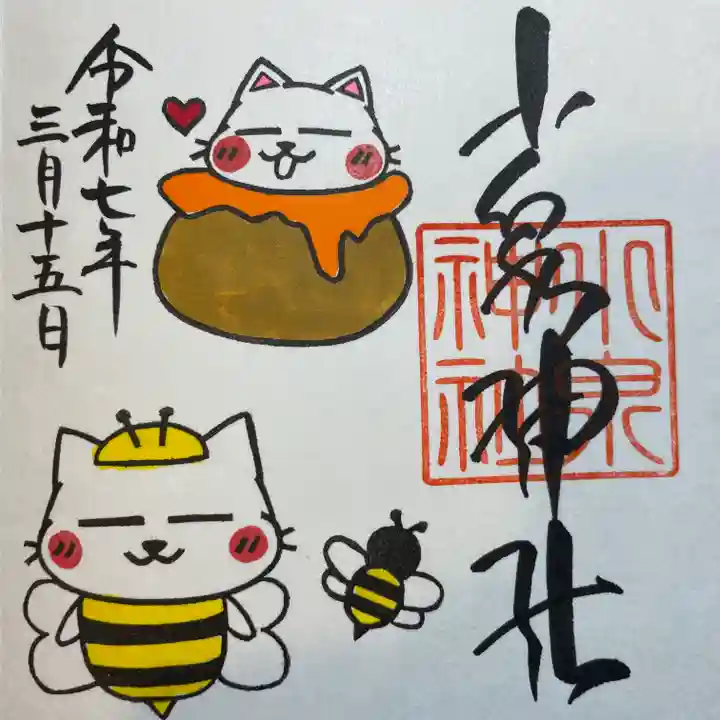 小泉神社
小泉神社
令和七年
三月十五日